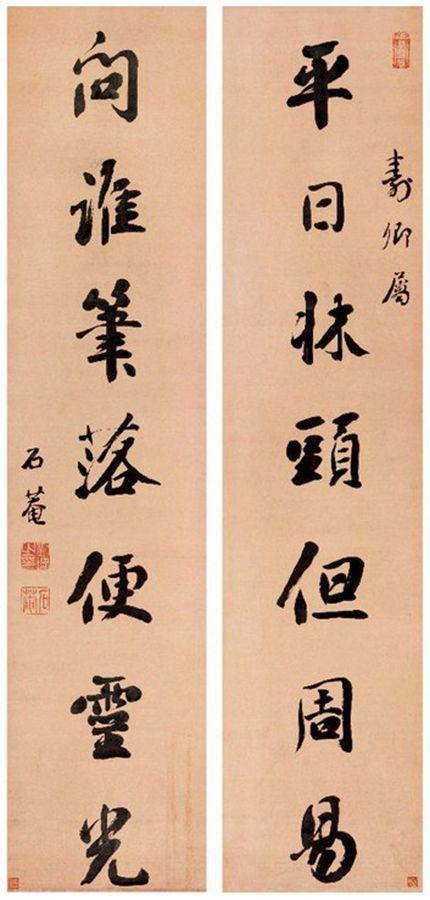 平日牀頭但周易
壽卿屬
問誰筆落便靈光
石菴